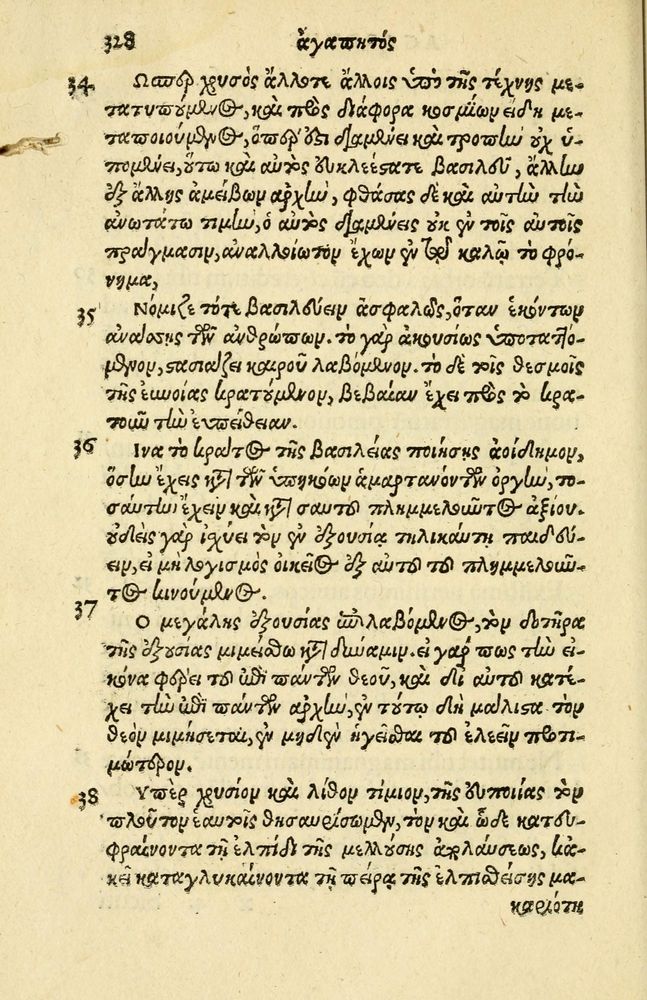 328 ἀγαπητός
34. Ωσπερ χρυσὸς ἄλλοτε ἄλλοις ὑπὸ τῆς τέχνης με-
τατυπούμενος, καὶ πρὸς διάφορα κοσμίων εἴδη με-
ταποιούμενος, ὅπερ ἐστὶ διαμένει καὶ τροπὴν οὐχ ὑ-
πομένει, οὕτω καὶ αὐτὸς εὐκλεέστατε βασιλεῦ, ἄλλην
ἐξ ἄλλης ἀμείβων ἀρχὴν, φθάσας δὲ καὶ αὐτὴν τὴν
ἀνωτάτω τιμὴν, ὁ αὐτὸς διαμένεις οὐκ ἐν τοῖς αὐτοῖς
πράγμασιν, ἀναλλοίωτον ἔχων ἐν τῷ καλῷ τὸ φρό-
νημα,
35 Νόμιζε τότε βασιλεύειν ἀσφαλῶς, ὅταν ἑκόντων
ἀνάσσης τῶν ἀνθρώπων. τὸ γὰρ ἀκουσίως ὑποταττό-
μενον, στασιάζει καιροῦ λαβόμενον. τὸ δὲ τοῖς θεσμοῖς
τῆς εὐνοίας κρατούμενον, βεβαίαν ἔχει πρὸς τὸ κρα-
τοῦν τὴν εὐπείθειαν.
36 Ινα τὸ κράτος τῆς βασιλείας ποιήσης ἀοίδημον,
ὅσην ἔχεις κατὰ τῶν ὑπηκόων ἁμαρτανόντων ὀργὴν, το-
σαύτην ἔχειν καὶ κατὰ σαυτοῦ πλημμελοῦντος ἀξίου.
οὐδεὶς γὰρ ἰσχύει τὸν ἐν ἐξουσίᾳ τηλικαύτῃ παιδεύ-
ειν, εἰ μὴ λογισμὸς οἰκεῖος ἐξ αὐτοῦ τοῦ πλημμελοῦν-
τος κινούμενος.
37 Ο μεγάλης ἐξουσίας ἐπιλαβόμενος, τὸν δοτῆρα
τῆς ἐξουσίας μιμείσθω κατὰ δύναμιν. εἰ γάρ πως τὴν εἰ-
κόνα φέρει τοῦ ἐπὶ πάντων θεοῦ, καὶ δι αὐτοῦ κατέ-
χει τὴν ἐπὶ πάντων ἀρχὴν, ἐν τούτῳ δὴ μάλιστα τὸν
θεὸν μιμήσεται, ἐν μηδὲν ἡγεῖσθαι τοῦ ἐλεεῖν προτι-
μώτερον.
38 Υπὲρ χρυσίον καὶ λίθον τίμιον, τῆς εὐποιίας τὸν
πλοῦτον ἑαυτοῖς θησαυρίσωμεν, τὸν καὶ ὧδε κατευ-
φραίνοντα τῇ ἐλπίδι τῆς μελλούσης ἀπολαύσεως, κἀ-
κεῖ καταγλυκαίνοντα τῇ πείρᾳ τῆς ἐλπισθείσης μα-
καριότη